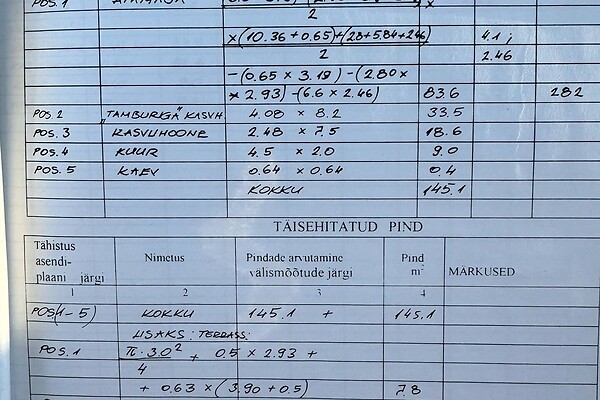 POS. 1
2
×(10.36 + 0.65)+(2.8+5.84+2.46) 4.1 ;
2 2.46
−(0.65 × 3.19) −(2.80×
× 2.93) −(6.6 × 2.46) 83.6 282
POS. 2 „TAMBURIGA" KASVH. 4.08 × 8.2 33.5
POS. 3 KASVUHOONE 2.48 × 7.5 18.6
POS. 4 KUUR 4.5 × 2.0 9.0
POS. 5 KAEV 0.64 × 0.64 0.4
KOKKU 145.1
TÄISEHITATUD PIND
Tähistus asendi-plaani järgi Nimetus Pindade arvutamine välismõõtude järgi Pind m² MÄRKUSED
1 2 3 4
POS(1-5) KOKKU 145.1 + 145.1
LISAKS: TERRASS:
POS. 1 π·3.0² + 0.5 × 2.93 +
4
+ 0.63 ×(3.90 + 0.5) 7.8